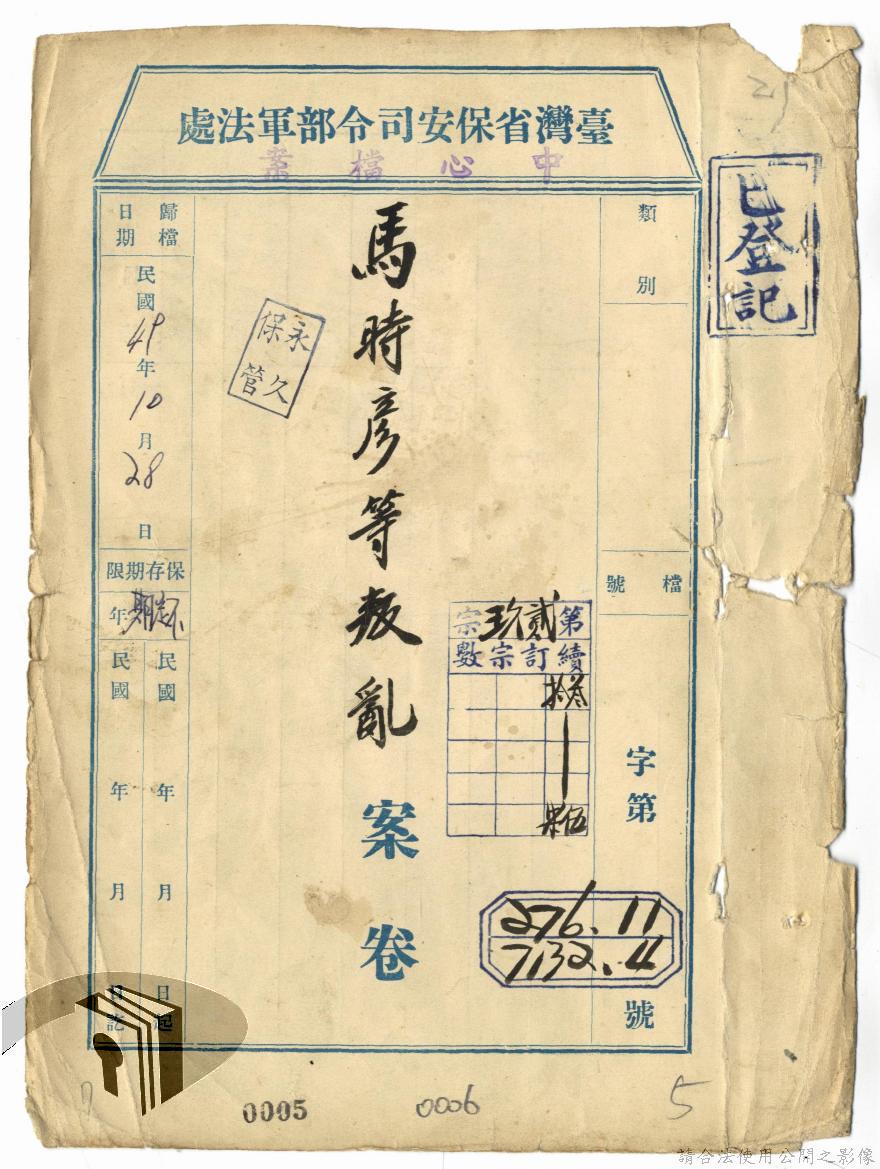 臺灣省保安司令部軍法處
中心檔案
已登記
類別
檔號
字第
276.11
7132.4
號
第貳玖宗
續訂宗數
拾叁
伍
馬時彥等叛亂
案卷
永久保管
歸檔日期
民國49年10月28日
保存期限
年
民國 年 月 日起
民國 年 月 日訖
0005
0006
5
請合法使用公開之影像